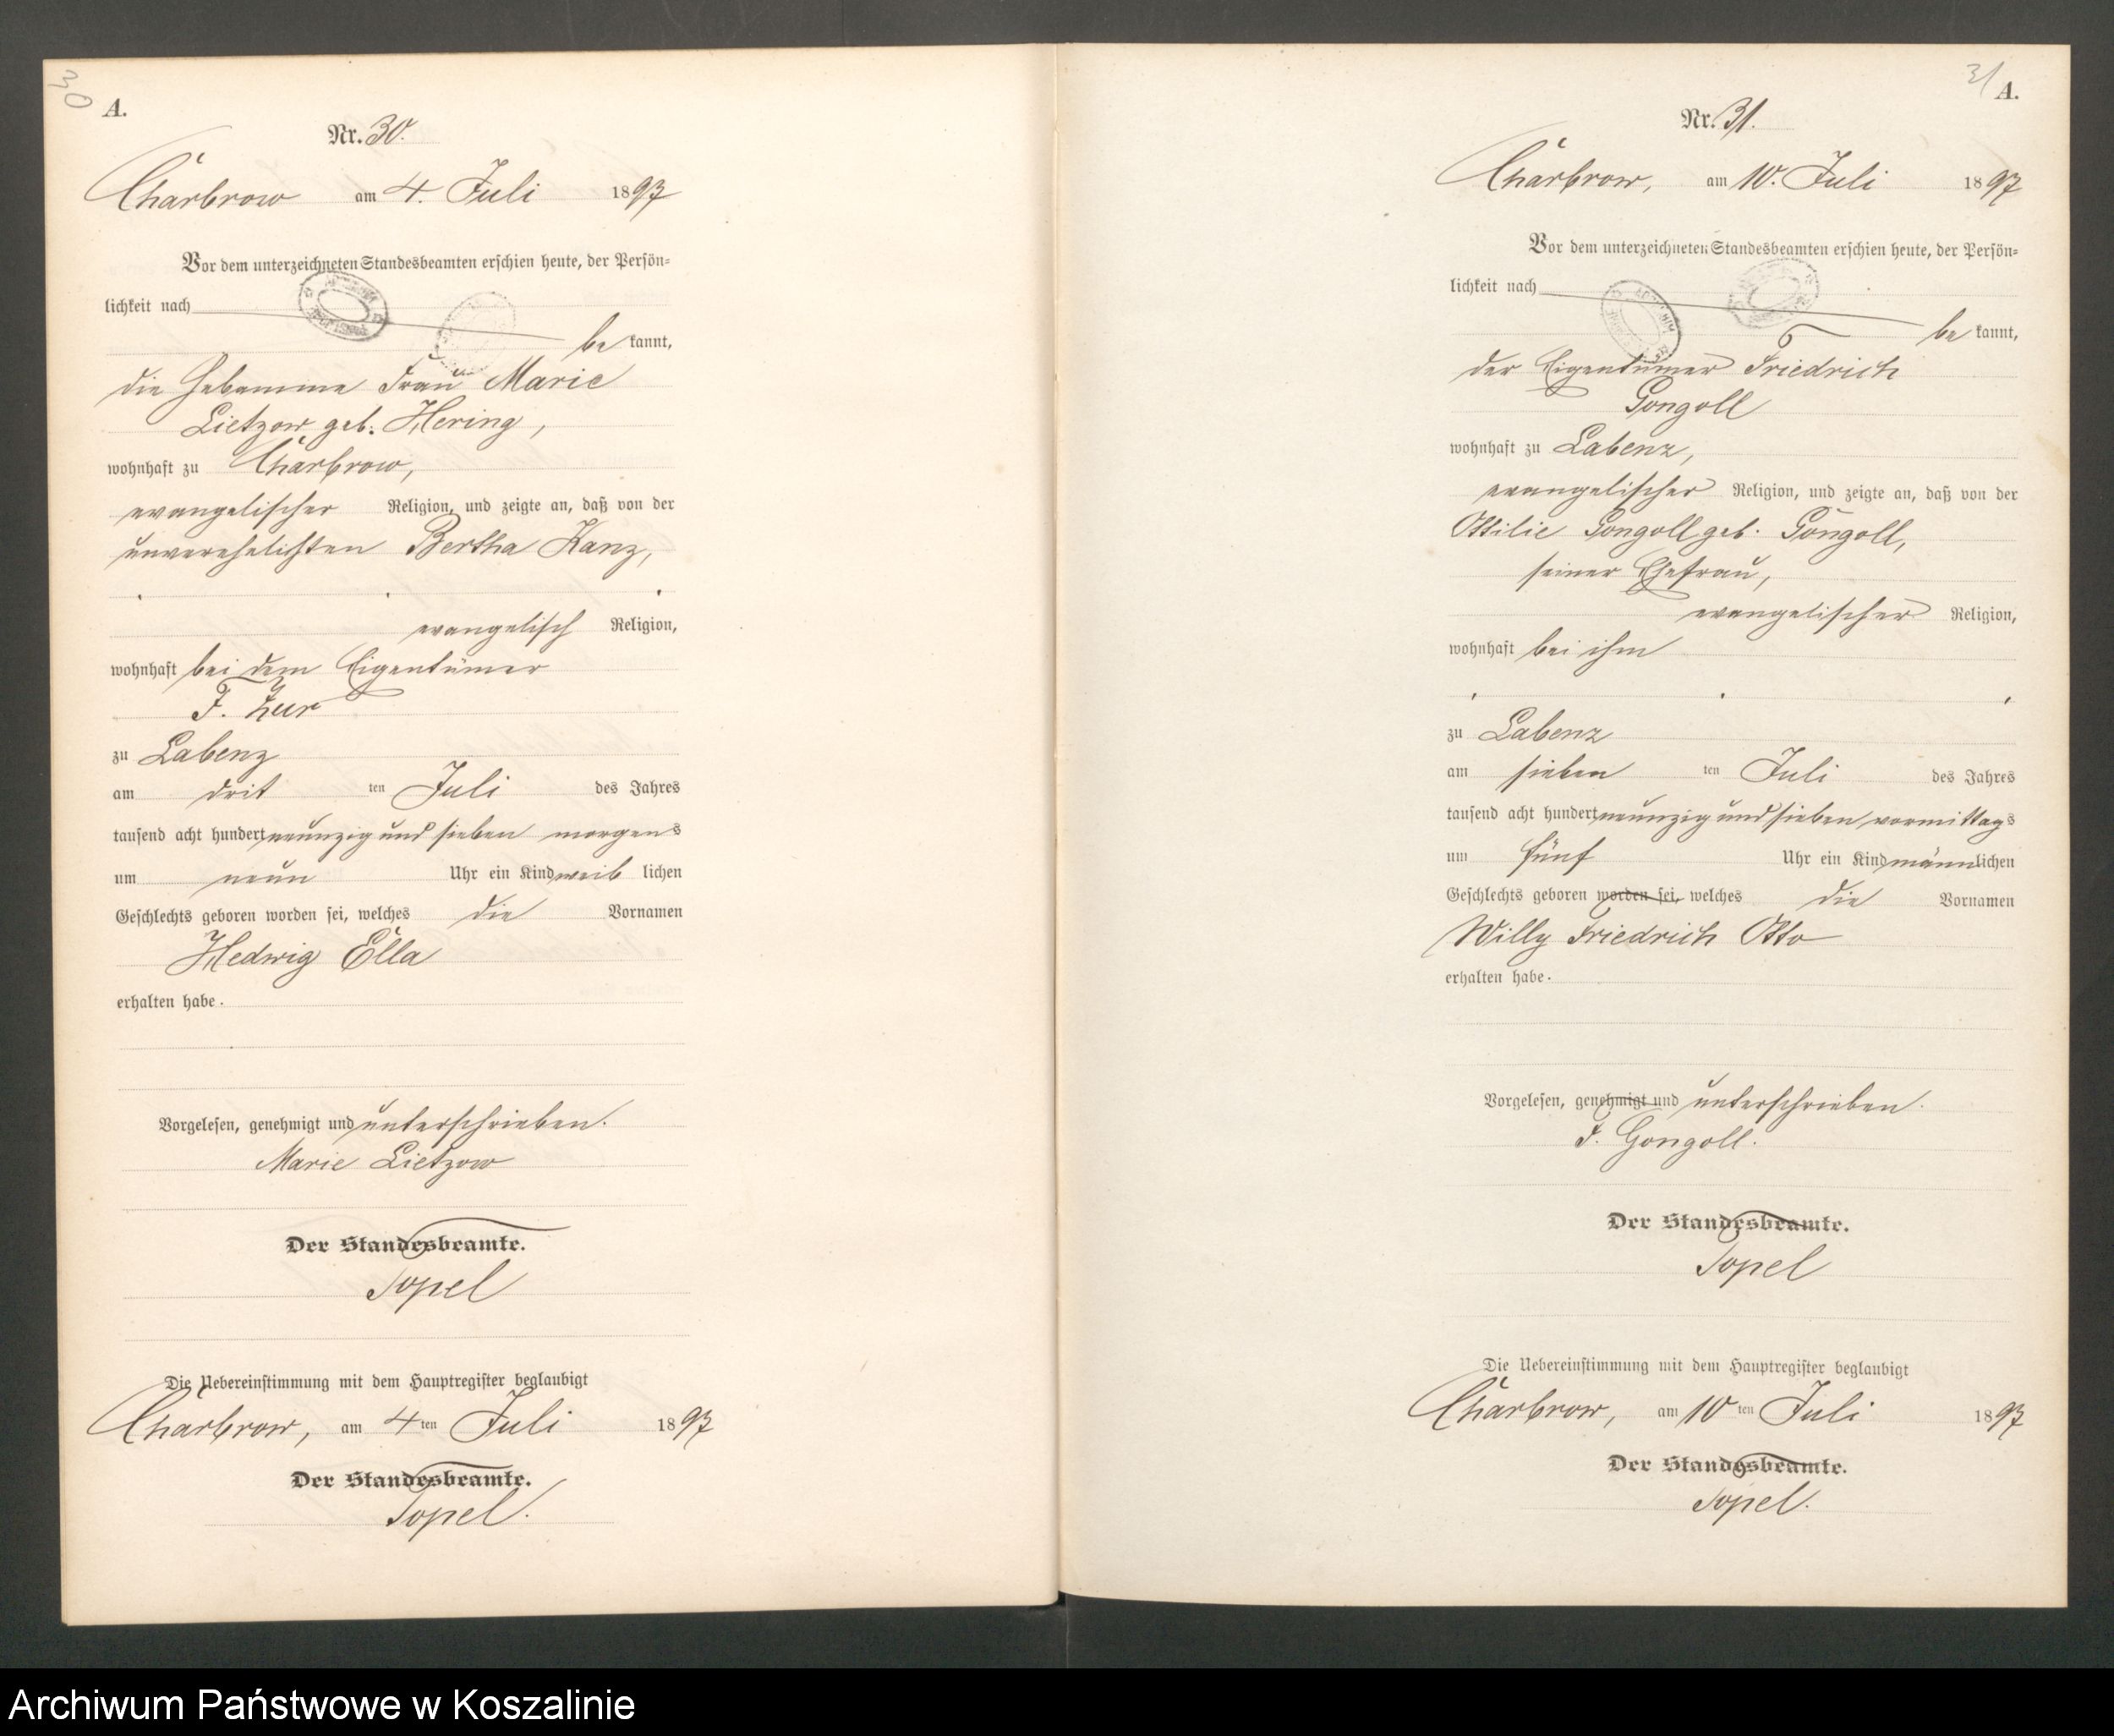 30
A.
Nr. 30.
Charbrow am 4. Juli 1897
Vor dem unterzeichneten Standesbeamten erschien heute, der Persön-
lichkeit nach
be kannt,
die Hebamme Frau Marie
Lietzow geb. Hering,
wohnhaft zu Charbrow,
evangelischer Religion, und zeigte an, daß von der
unverehelichten Bertha Kanz,
evangelisch Religion,
wohnhaft bei dem Eigentümer
F. Zur
zu Labenz
am drit ten Juli des Jahres
tausend acht hundert neunzig und sieben morgens
um neun Uhr ein Kind weib lichen
Geschlechts geboren worden sei, welches die Vornamen
Hedwig Ella
erhalten habe.
Vorgelesen, genehmigt und unterschrieben.
Marie Lietzow
Der Standesbeamte.
Topel
Die Uebereinstimmung mit dem Hauptregister beglaubigt
Charbrow, am 4 ten Juli 1897
Der Standesbeamte.
Topel.
31
A.
Nr. 31.
Charbrow, am 10. Juli 1897
Vor dem unterzeichneten Standesbeamten erschien heute, der Persön-
lichkeit nach
be kannt,
der Eigentümer Friedrich
Gongoll
wohnhaft zu Labenz,
evangelischer Religion, und zeigte an, daß von der
Ottilie Gongoll geb. Gongoll,
seiner Ehefrau,
evangelischer Religion,
wohnhaft bei ihm
zu Labenz
am sieben ten Juli des Jahres
tausend acht hundert neunzig und sieben vormittags
um fünf Uhr ein Kind männlichen
Geschlechts geboren worden sei, welches die Vornamen
Willy Friedrich Otto
erhalten habe.
Vorgelesen, genehmigt und unterschrieben.
F. Gongoll.
Der Standesbeamte.
Topel
Die Uebereinstimmung mit dem Hauptregister beglaubigt
Charbrow, am 10 ten Juli 1897
Der Standesbeamte.
Topel.
Archiwum Państwowe w Koszalinie